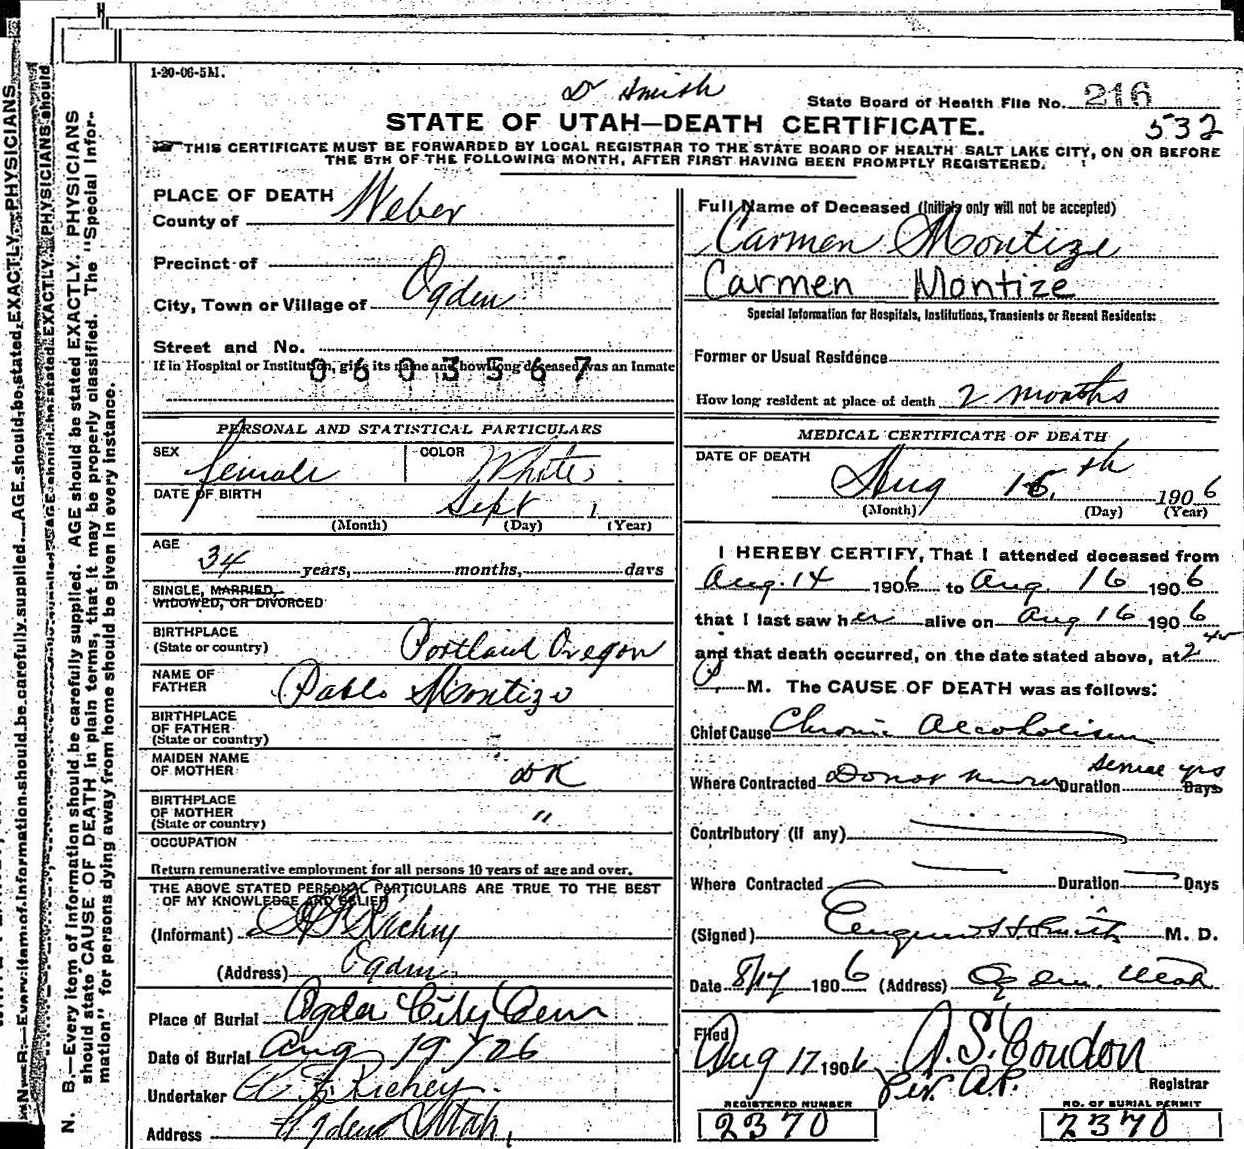 1-20-06-5M.
Dr Smith
State Board of Health File No. 216
532
STATE OF UTAH—DEATH CERTIFICATE.
THIS CERTIFICATE MUST BE FORWARDED BY LOCAL REGISTRAR TO THE STATE BOARD OF HEALTH SALT LAKE CITY, ON OR BEFORE
THE 5TH OF THE FOLLOWING MONTH, AFTER FIRST HAVING BEEN PROMPTLY REGISTERED.
PLACE OF DEATH
County of Weber
Precinct of
City, Town or Village of Ogden
Street and No.
If in Hospital or Institution, give its name and how long deceased was an Inmate
0603567
PERSONAL AND STATISTICAL PARTICULARS
SEX female
COLOR White
DATE OF BIRTH Sept 1
(Month) (Day) (Year)
AGE
34 years, months, days
SINGLE, MARRIED,
WIDOWED, OR DIVORCED
BIRTHPLACE
(State or country) Portland Oregon
NAME OF
FATHER Pablo Montize
BIRTHPLACE
OF FATHER
(State or country)
MAIDEN NAME
OF MOTHER DK
BIRTHPLACE
OF MOTHER "
(State or country)
OCCUPATION
Return remunerative employment for all persons 10 years of age and over.
THE ABOVE STATED PERSONAL PARTICULARS ARE TRUE TO THE BEST
OF MY KNOWLEDGE AND BELIEF
(Informant) Richey
(Address) Ogden
Place of Burial Ogden City Cem
Date of Burial Aug 19 1906
Undertaker Richey
Address Ogden Utah,
Full Name of Deceased (Initials only will not be accepted)
Carmen Montize
Carmen Montize
Special Information for Hospitals, Institutions, Transients or Recent Residents:
Former or Usual Residence
How long resident at place of death 2 months
MEDICAL CERTIFICATE OF DEATH
DATE OF DEATH
Aug 16th 1906
(Month) (Day) (Year)
I HEREBY CERTIFY, That I attended deceased from
Aug. 14 1906 to Aug. 16 1906
that I last saw her alive on Aug 16 1906
and that death occurred, on the date stated above, at 2 45
P. M. The CAUSE OF DEATH was as follows:
Chief Cause Chronic Alcoholism
Where Contracted Do not know Duration yrs Days
Contributory (If any)
Where Contracted Duration Days
(Signed) Smith M. D.
Date 8/17 1906 (Address) Ogden. Utah
Filed
Aug 17 1906 A. S. Condon
per. A.P. Registrar
REGISTERED NUMBER
2370
NO. OF BURIAL PERMIT
2370
N. B.—Every item of information should be carefully supplied. AGE should be stated EXACTLY. PHYSICIANS
should state CAUSE OF DEATH in plain terms, that it may be properly classified. The "Special Infor-
mation" for persons dying away from home should be given in every instance.